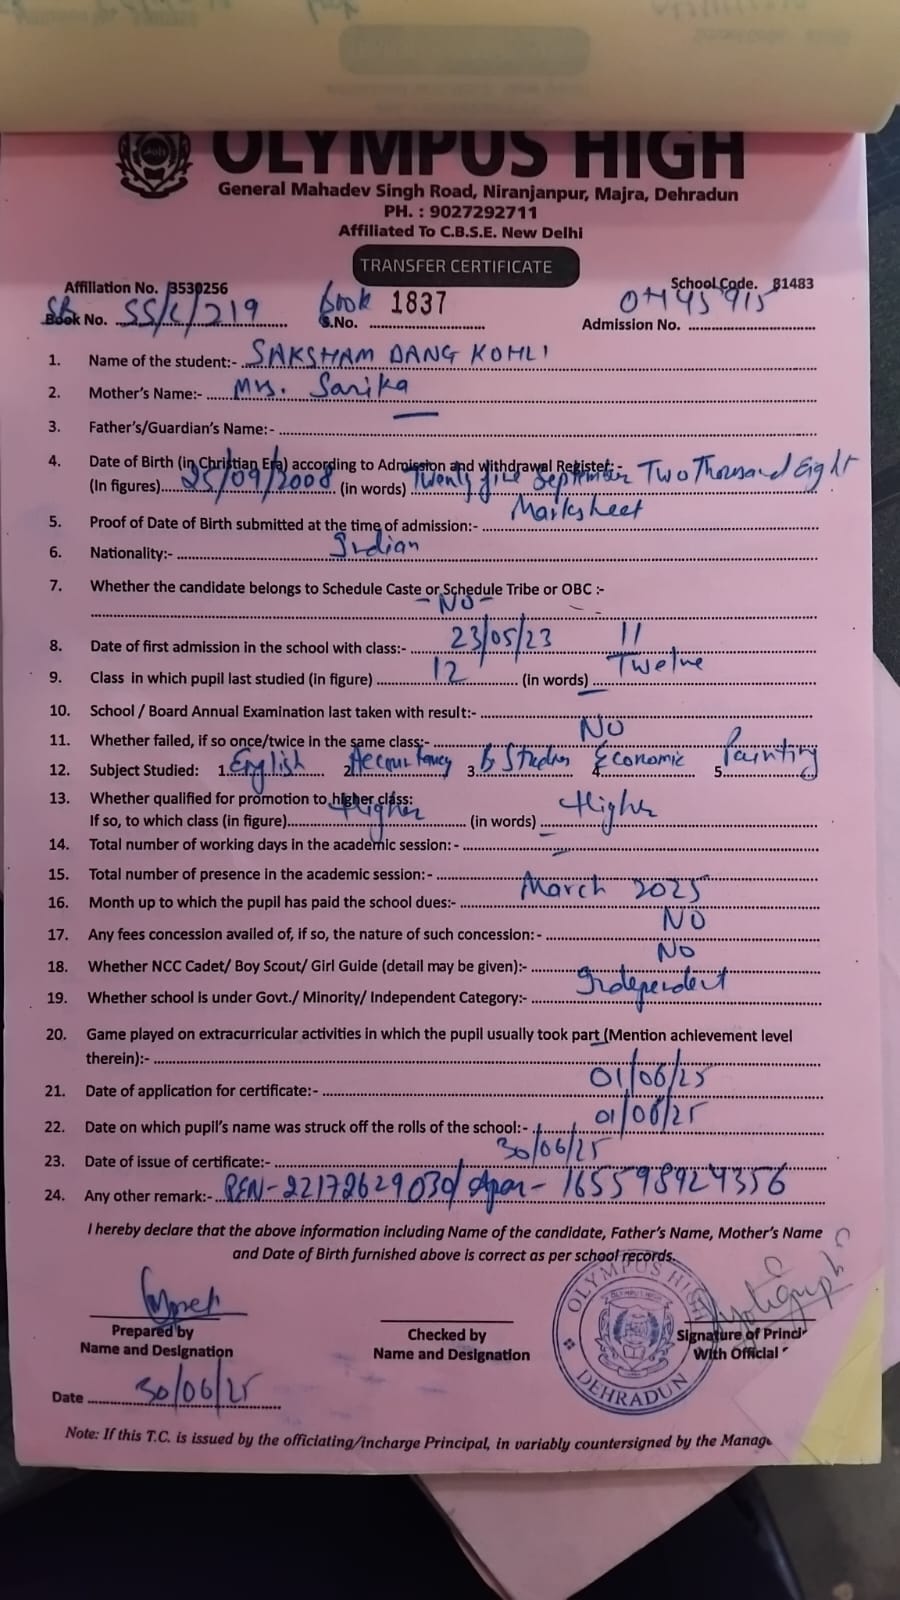 OLYMPUS HIGH
General Mahadev Singh Road, Niranjanpur, Majra, Dehradun
PH. : 9027292711
Affiliated To C.B.S.E. New Delhi
TRANSFER CERTIFICATE
Affiliation No. 3530256 School Code. 81483
SR Book No. SS/C/219 Book S.No. 1837 Admission No. 0445915
1. Name of the student:- SAKSHAM DANG KOHLI
2. Mother's Name:- Mrs. Sarika
3. Father's/Guardian's Name:- —
4. Date of Birth (in Christian Era) according to Admission and withdrawal Register:-
(In figures) 25/09/2008 (in words) Twenty five September Two Thousand Eight
5. Proof of Date of Birth submitted at the time of admission:- Marksheet
6. Nationality:- Indian
7. Whether the candidate belongs to Schedule Caste or Schedule Tribe or OBC :-
- NO -
8. Date of first admission in the school with class:- 23/05/23 11
9. Class in which pupil last studied (in figure) 12 (in words) Twelve
10. School / Board Annual Examination last taken with result:-
11. Whether failed, if so once/twice in the same class:- NO
12. Subject Studied: 1. English 2. Accountancy 3. B Studies 4. Economic 5. Painting
13. Whether qualified for promotion to higher class:
If so, to which class (in figure) Higher (in words) Higher
14. Total number of working days in the academic session: -
15. Total number of presence in the academic session:-
16. Month up to which the pupil has paid the school dues:- March 2025
17. Any fees concession availed of, if so, the nature of such concession:- NO
18. Whether NCC Cadet/ Boy Scout/ Girl Guide (detail may be given):- NO
19. Whether school is under Govt./ Minority/ Independent Category:- Independent
20. Game played on extracurricular activities in which the pupil usually took part (Mention achievement level
therein):-
21. Date of application for certificate:- 01/06/25
22. Date on which pupil's name was struck off the rolls of the school:- 01/06/25
23. Date of issue of certificate:- 30/06/25
24. Any other remark:- PEN-22172629030/ Apar- 165598924356
I hereby declare that the above information including Name of the candidate, Father's Name, Mother's Name
and Date of Birth furnished above is correct as per school records.
OLYMPUS HIGH
DEHRADUN
Prepared by Checked by Signature of Princi
Name and Designation Name and Designation With Official
Date 30/06/25
Note: If this T.C. is issued by the officiating/incharge Principal, in variably countersigned by the Manag